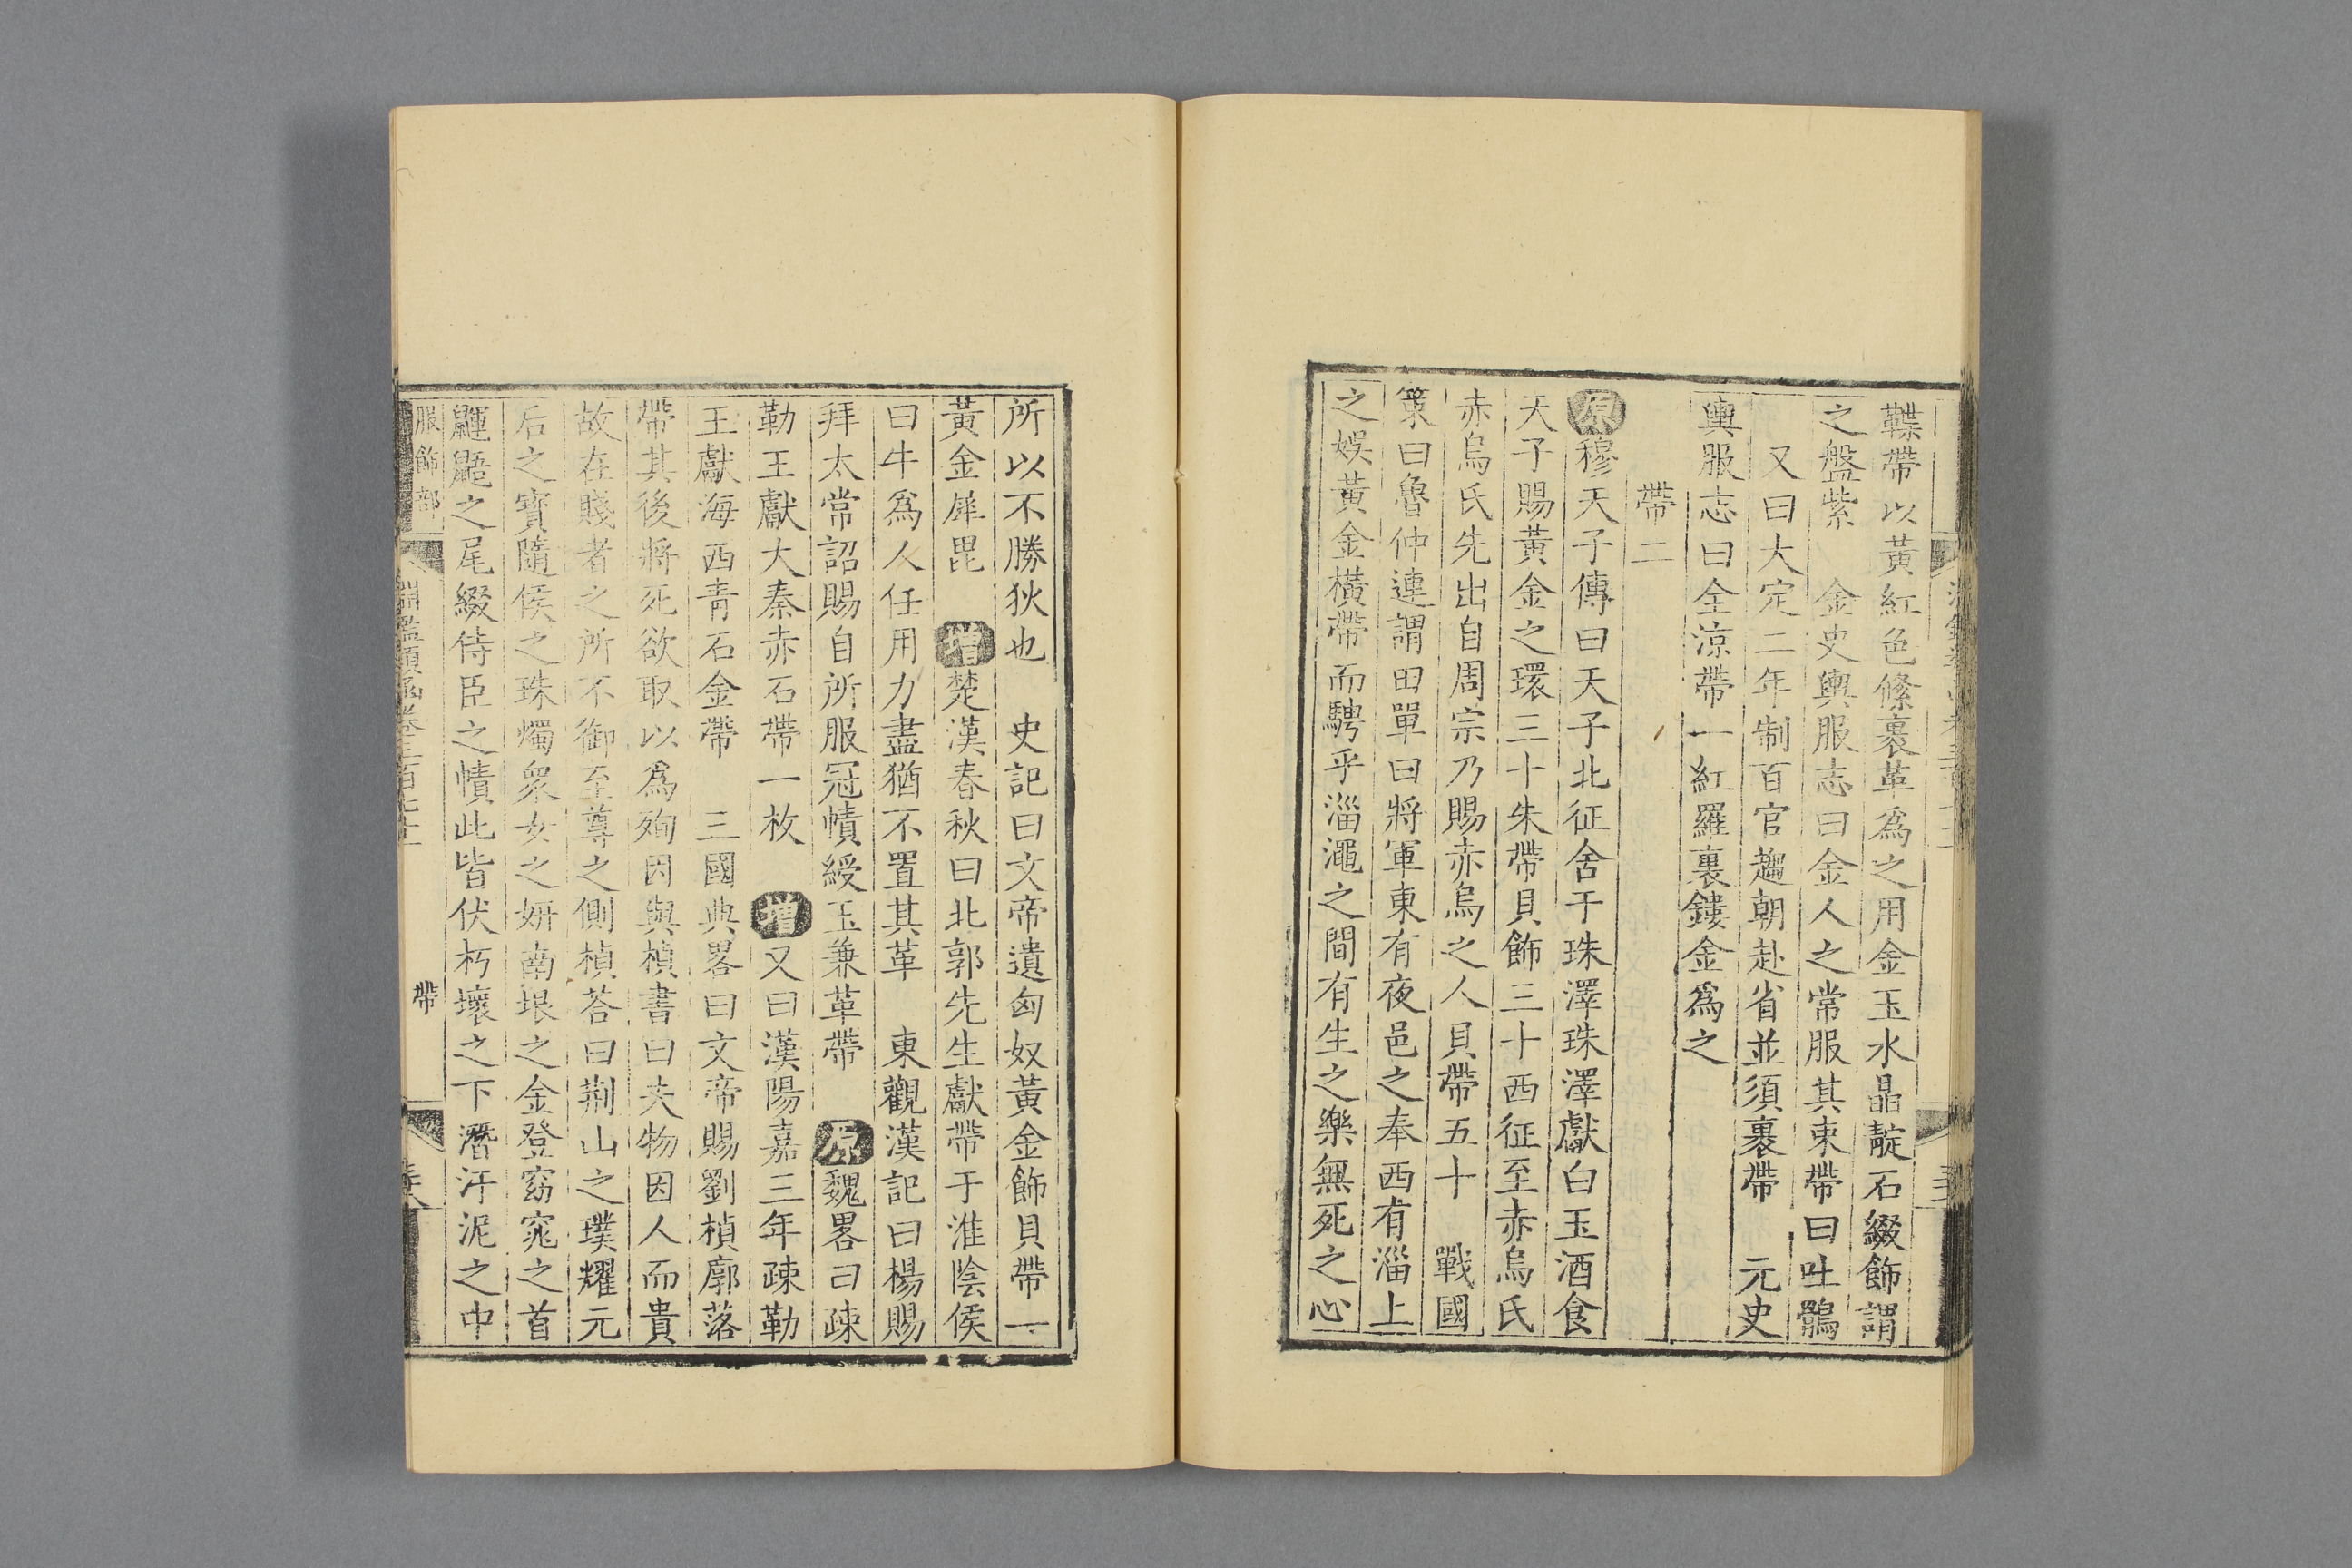 鞢帶以黃紅色絛裹革爲之用金玉水晶靛石綴飾謂
之盤紫　金史輿服志曰金人之常服其束帶曰吐鶻
又曰大定二年制百官趨朝赴省並須裹帶　元史
輿服志曰全涼帶一紅羅裏鏤金爲之
帶二
原穆天子傳曰天子北征舍于珠澤珠澤獻白玉酒食
天子賜黃金之環三十朱帶貝飾三十西征至赤烏氏
赤烏氏先出自周宗乃賜赤烏之人貝帶五十　戰國
策曰魯仲連謂田單曰將軍東有夜邑之奉西有淄上
之娛黃金橫帶而騁乎淄澠之間有生之樂無死之心
所以不勝狄也　史記曰文帝遺匈奴黃金飾貝帶一
黃金犀毘　增楚漢春秋曰北郭先生獻帶于淮陰侯
曰牛爲人任用力盡猶不置其革　東觀漢記曰楊賜
拜太常詔賜自所服冠幘綬玉兼革帶　原魏畧曰疎
勒王獻大秦赤石帶一枚　增又曰漢陽嘉三年疎勒
王獻海西青石金帶　三國典畧曰文帝賜劉楨廓落
帶其後將死欲取以爲殉因與楨書曰夫物因人而貴
故在賤者之所不御至尊之側楨荅曰荆山之璞耀元
后之寶隨侯之珠燭衆女之妍南垠之金登窈窕之首
鼲䶉之尾綴侍臣之幘此皆伏朽壞之下潛汙泥之中
服飾部　淵鑑類函卷三百七十　帶